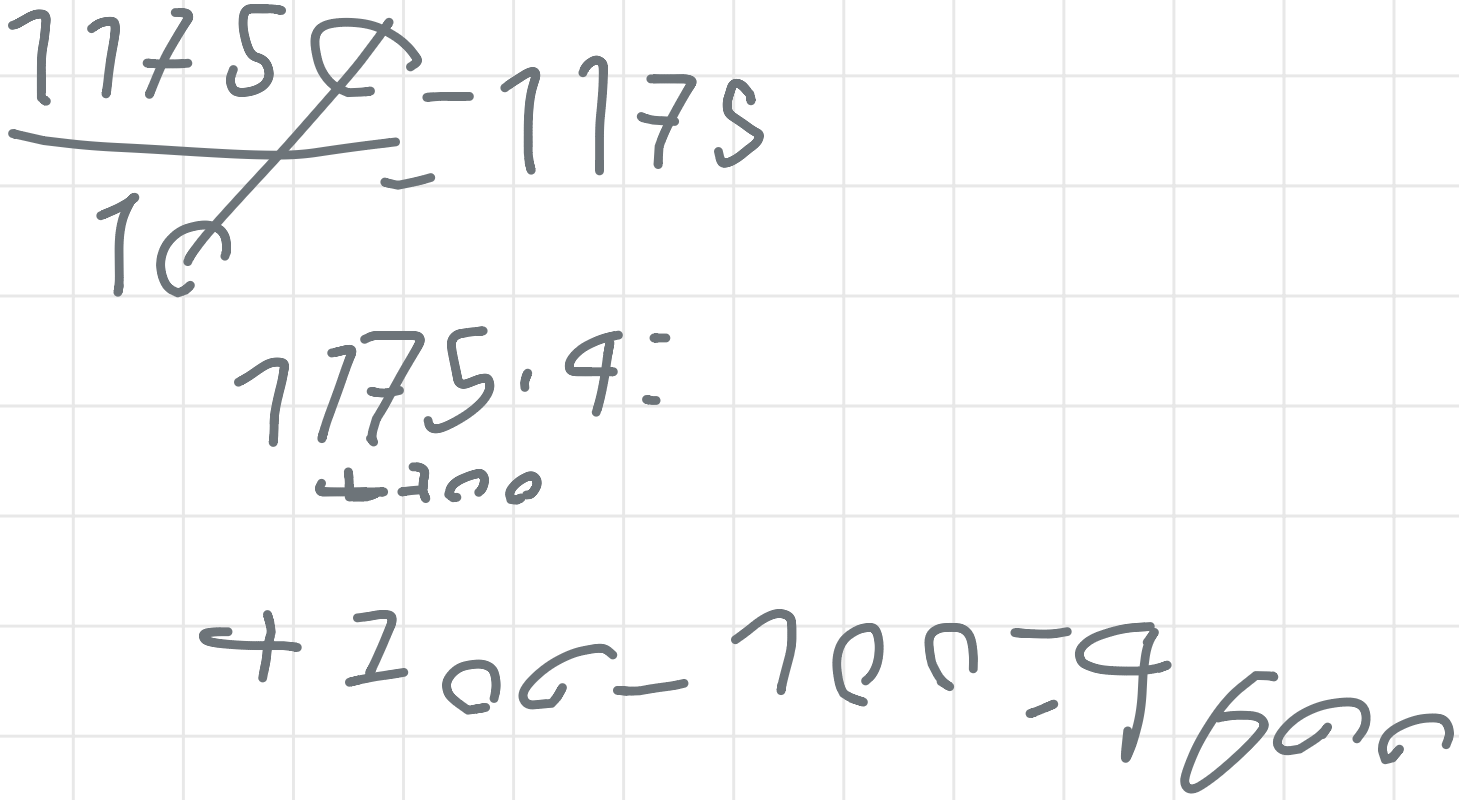 11750 = 1175
10
1175 · 4 =
+200
+ 200 - 100 = 4600